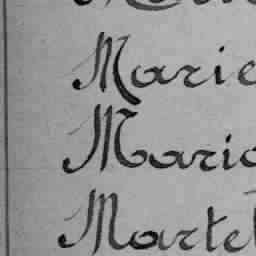 Marie
Mario
Martel